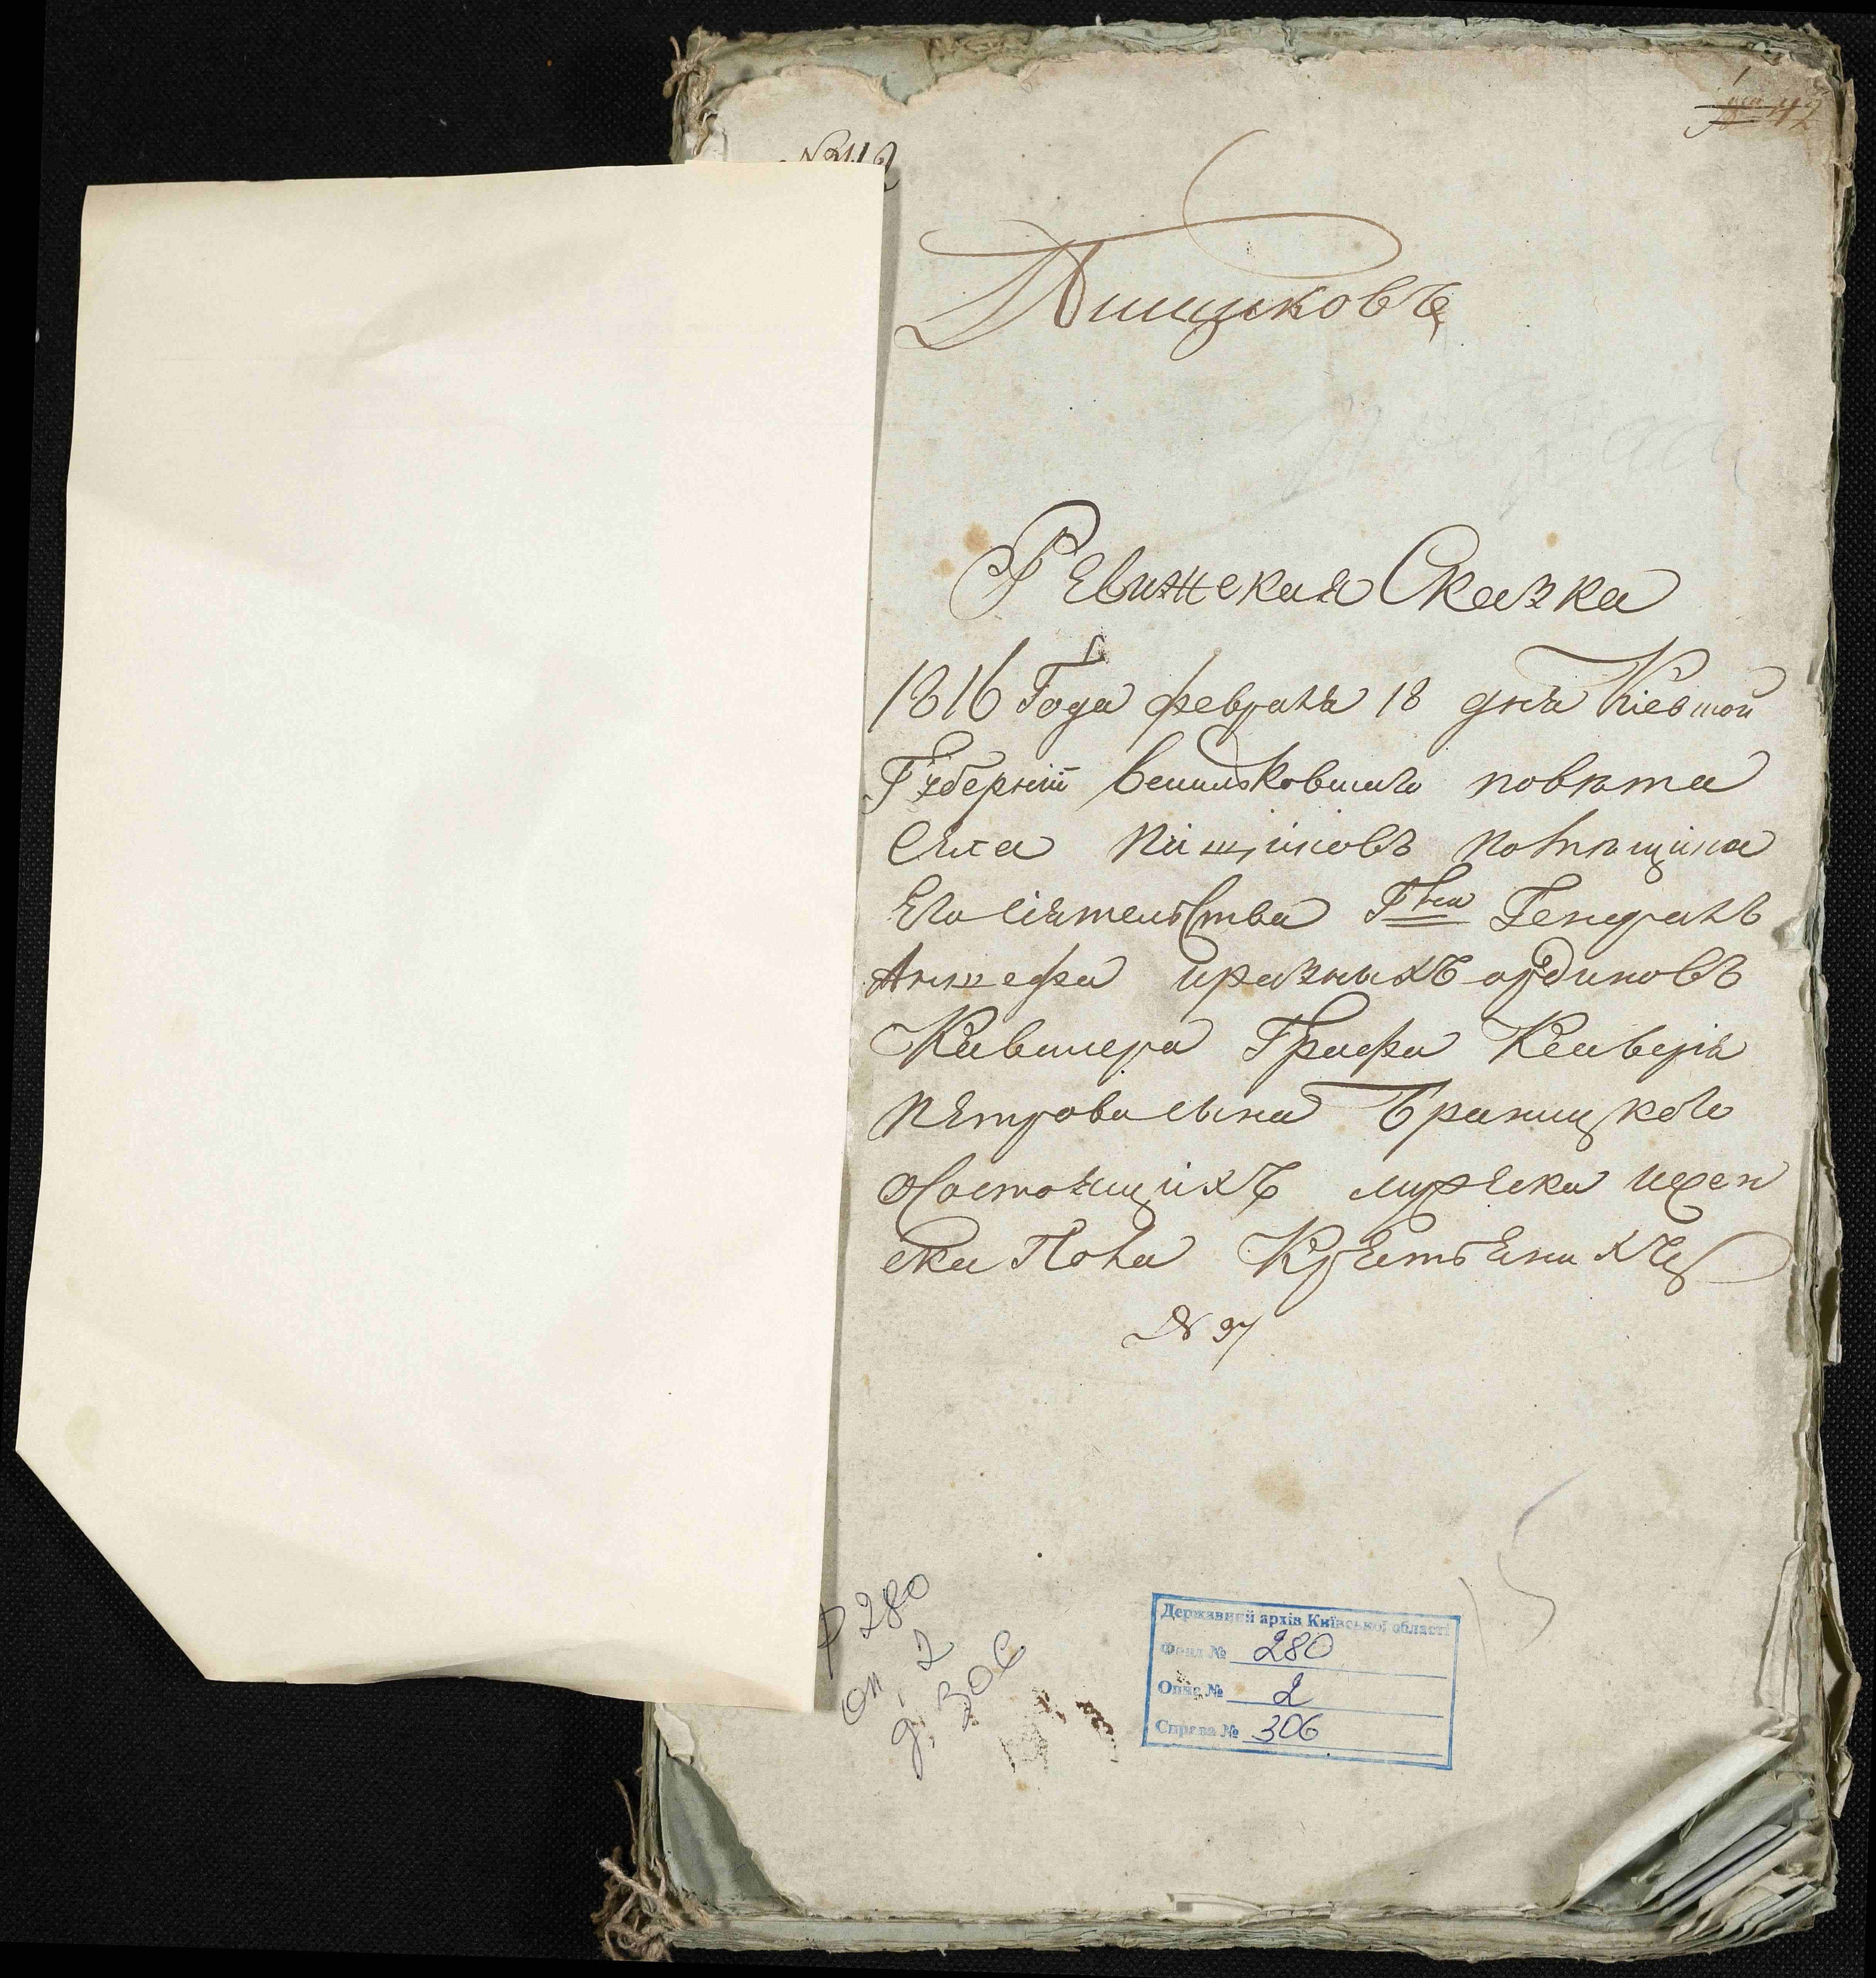 № 42
Пищиковъ
Ревижская Сказка
1816 Года февраля 18 дня Кіевшой
Губерніи Василковшаго повѣта
Села Піщіковъ Помѣщика
Его Сіятельства Гна Генерала
Аншефа и разныхъ ординовъ
Кавалера Графа Ксаверія
Петрова сына Браницкого
осостоящихъ мужеска и жен
ска Пола Крестьянахъ
№ 37
Ф 280
оп. 2
д. 306
Державний архів Київської області
Фонд № 280
Опис № 2
Справа № 306